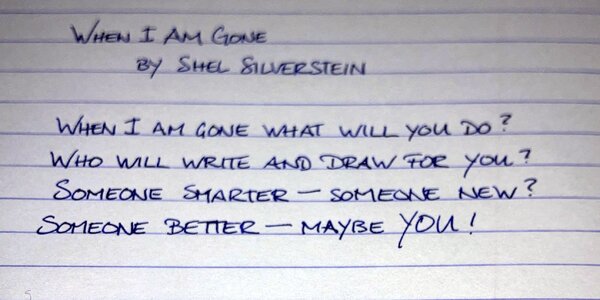 When I Am Gone
by Shel Silverstein
When I am gone what will you do?
Who will write and draw for you?
Someone smarter — someone new?
Someone better — maybe YOU!